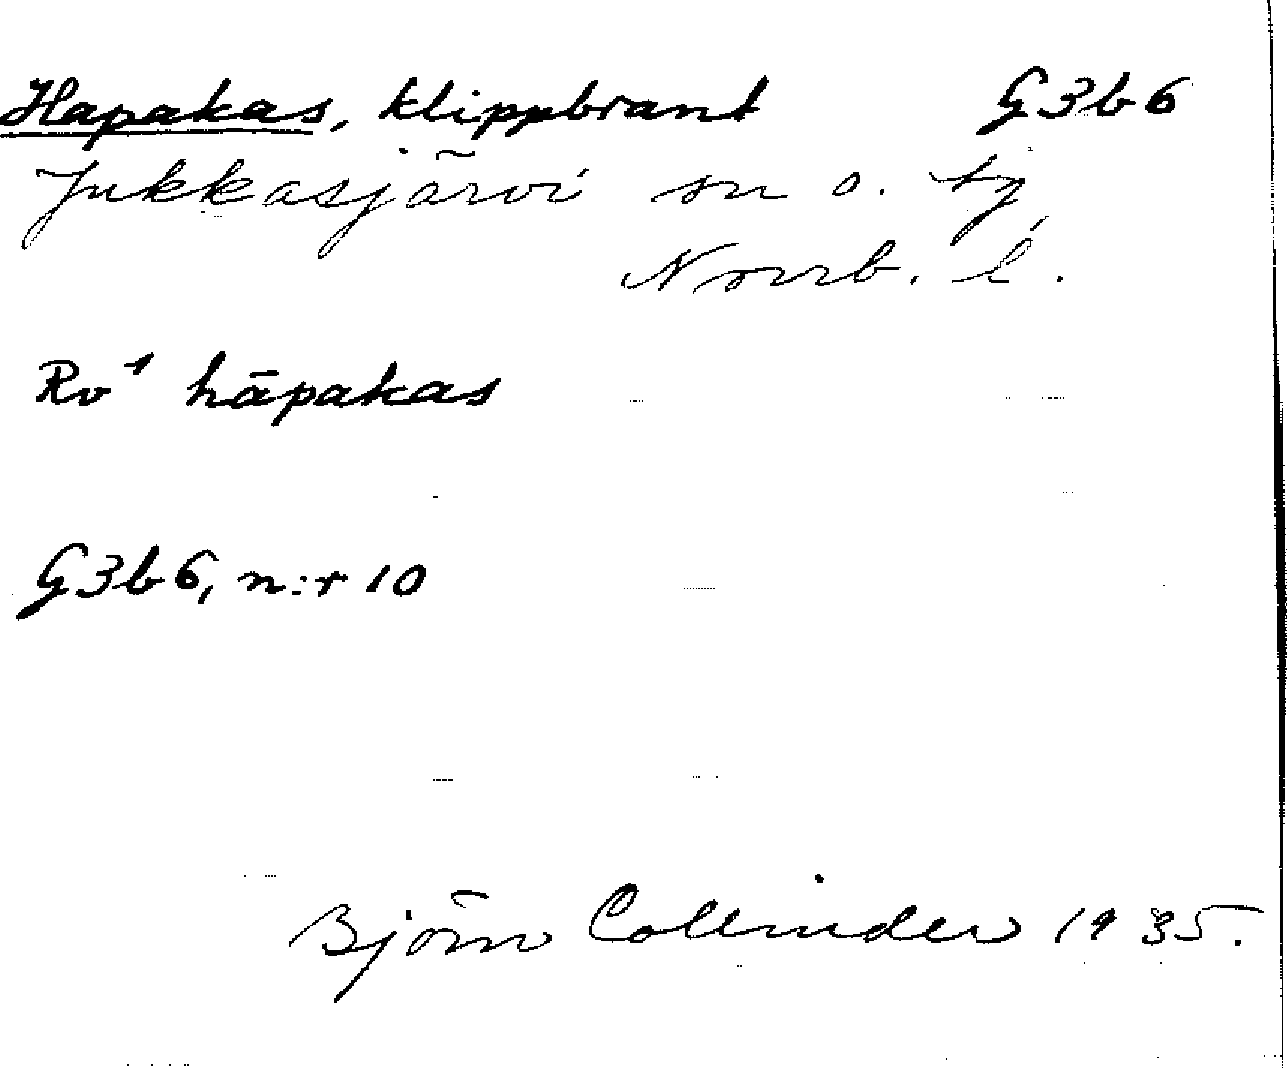 Hapakas, klippbrant G3b6
Jukkasjärvi sn o. tg
Norrb. l.
Rv¹ hāpakas
G3b6, n:r 10
Björn Collinder 1935.